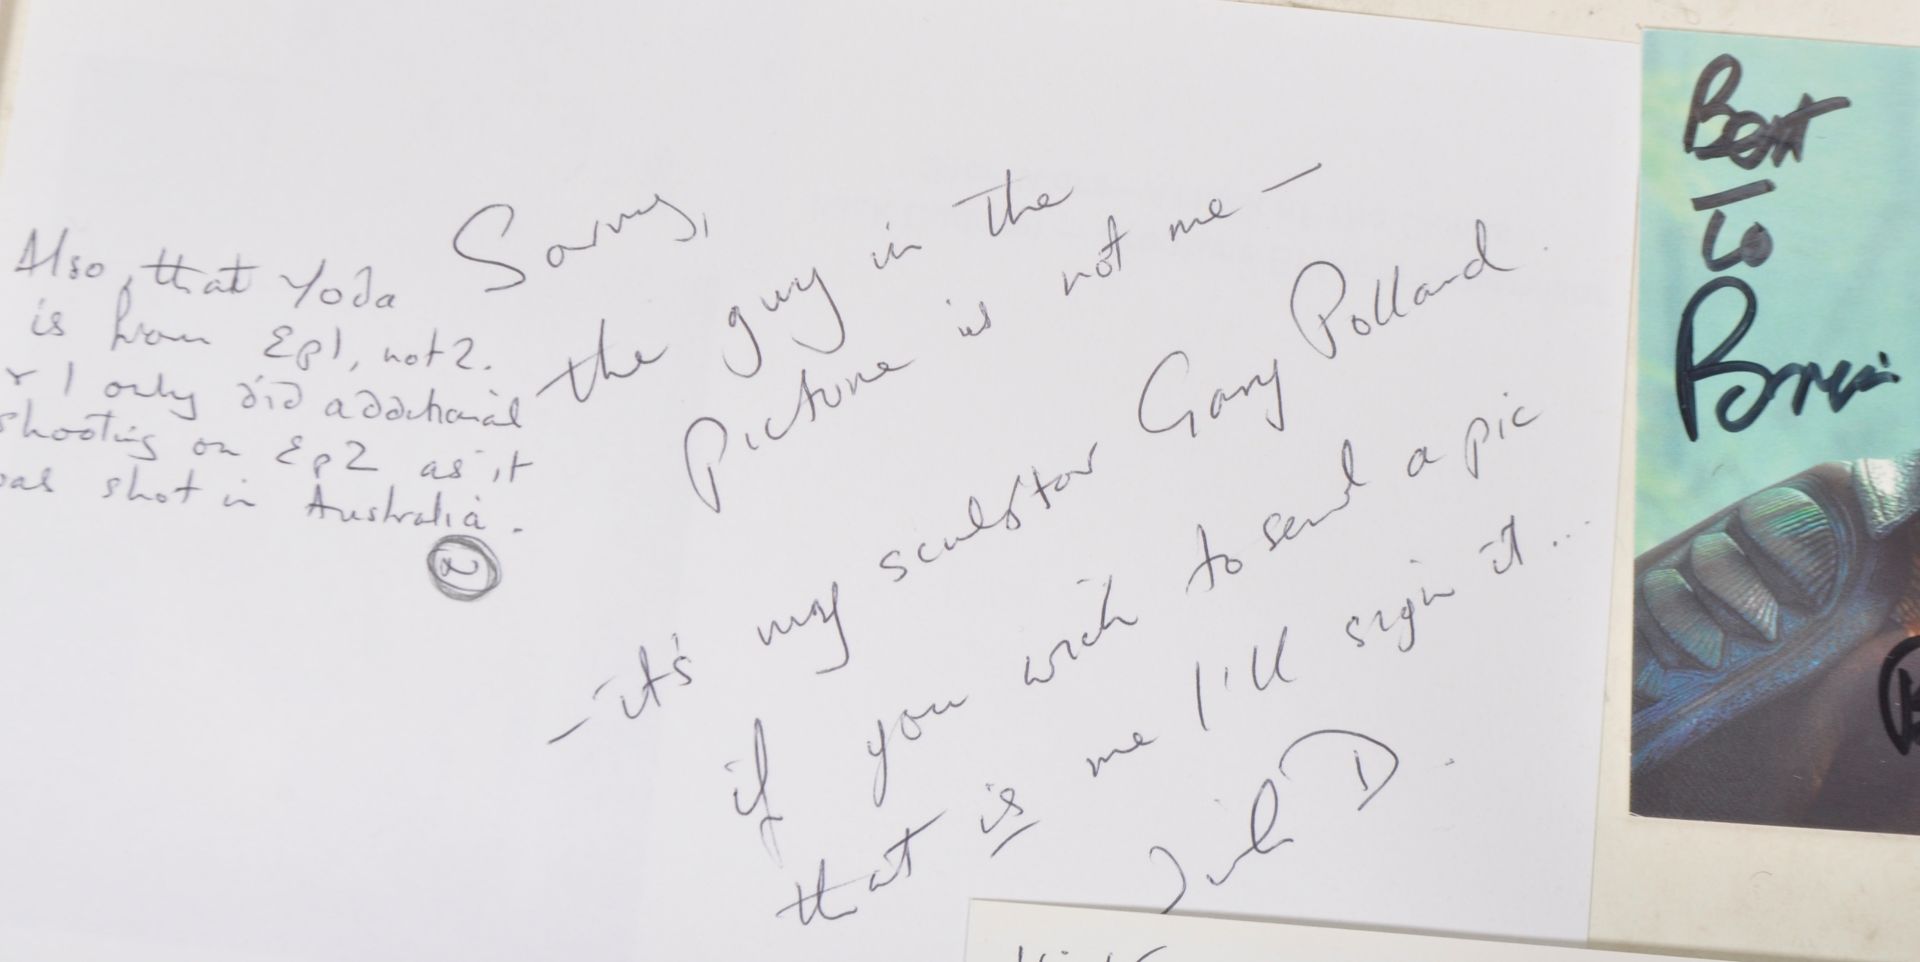 Sorry,
the guy in the
picture is not me —
— it's my sculptor Gary Polland.
if you wish to send a pic
that is me I'll sign it...
D.
Also, that Yoda
is from Ep1, not 2.
I only did additional
shooting on Ep2 as it
was shot in Australia.
Best
to